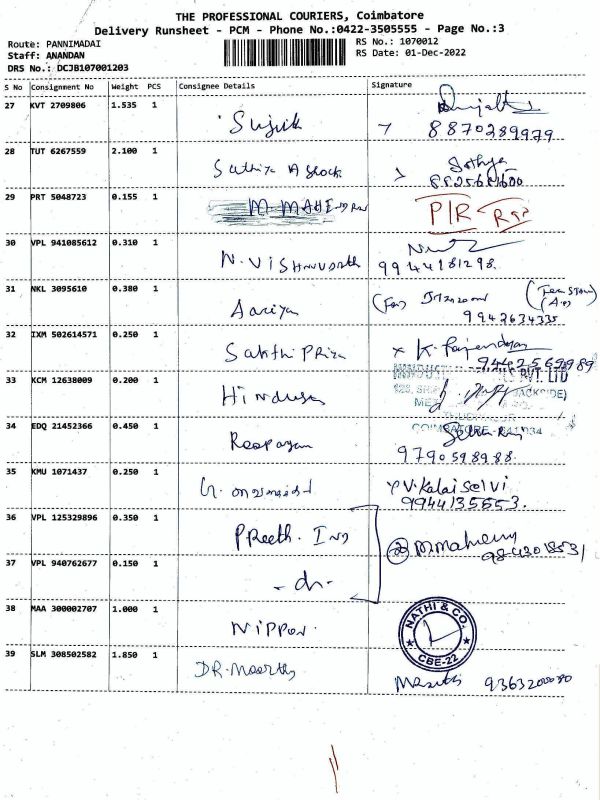 THE PROFESSIONAL COURIERS, Coimbatore
Delivery Runsheet - PCM - Phone No.:0422-3505555 - Page No.:3
Route: PANNIMADAI
RS No.: 1070012
Staff: ANANDAN
RS Date: 01-Dec-2022
DRS No.: DCJB107001203
S No Consignment No Weight PCS Consignee Details Signature
27 KVT 2709806 1.535 1
8870289979
28 TUT 6267559 2.100 1 Sathiya Sathya
29 PRT 5048723 0.155 1 P/R
30 VPL 941085612 0.310 1
9944181298
31 NKL 3095610 0.380 1 Aariya
9942634335
32 IXM 502614571 0.250 1 Sakthi Priya x K. Rajendran
9442569989
PVT. LTD
33 KCM 12638009 0.200 1
COIMBATORE - 641034
34 EDQ 21452366 0.450 1
9790598988
35 KMU 1071437 0.250 1 V. Kalai selvi
9944135553
36 VPL 125329896 0.350 1 Preeth. Ind
37 VPL 940762677 0.150 1 -do-
38 MAA 300002707 1.000 1 Nippon
NATHI & CO.
CBE-22
39 SLM 308502582 1.850 1 DR. Moorthy